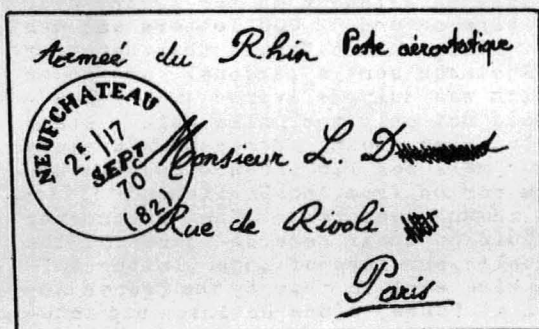 Armeé du Rhin Poste aérostatique
NEUFCHATEAU
2E/17
SEPT
70
(82)
Monsieur L. D
Rue de Rivoli
Paris